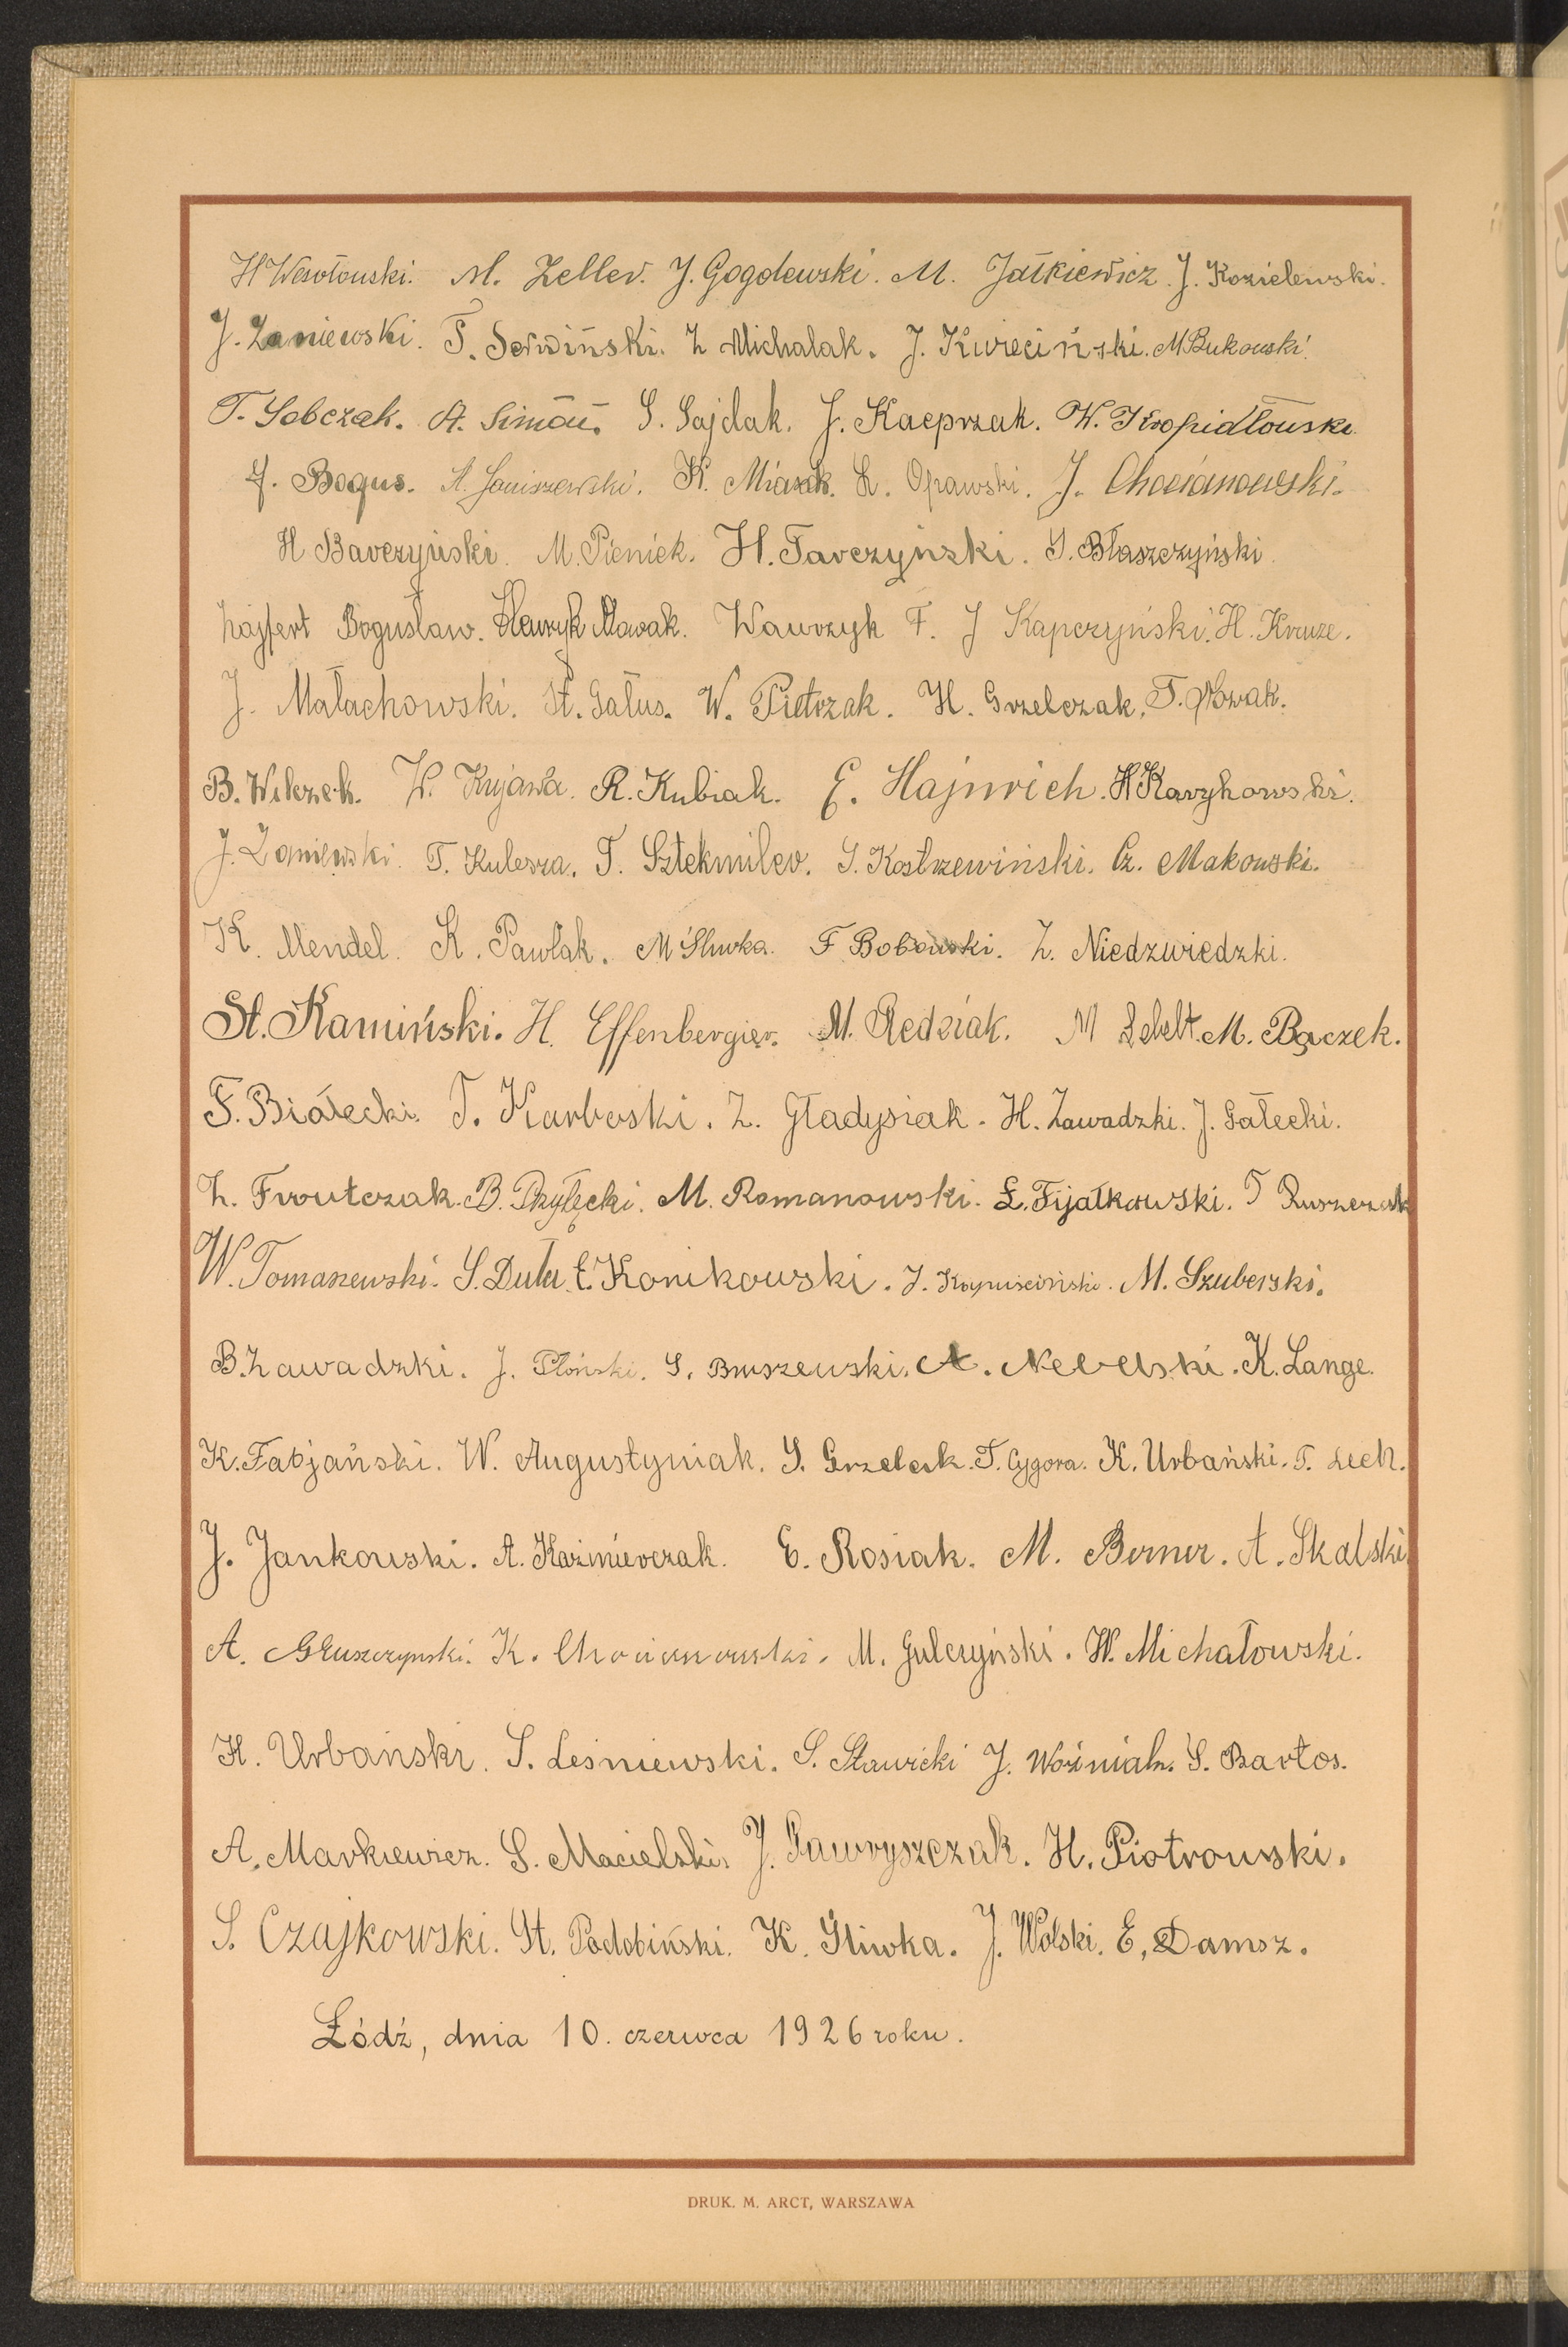 H Wesołowski. M. Zeller. J. Gogolewski. M. Jatkiewicz. J. Kozielewski.
J. Zaniewski. T. Serwiński. Z Michalak. J. Kwieciński. M Bukowski.
T. Sobczak. A. Simon. S. Sajdak. J. Kacprzak. W. Kropidłowski.
J. Bogus. A. Janiszewski. K. Miazek. L. Opawski. J. Chocianowski.
H Barczyński. M. Pieniek. H. Tarczyński. S. Błaszczyński.
Hajfert Bogusław. Henryk Nowak. Wawrzyk F. J Kapczyński. H. Kruze.
J. Małachowski. St. Gałus. W. Pietrzak. H. Grzelczak. T. Nowak.
B. Wilczek. W. Kujawa. R. Kubiak. E. Hajnrich. H Karykowski.
J. Zaniewski. T. Kulesza. T. Sztekmiler. S. Kostrzewiński. Cz. Makowski.
K. Mendel. K. Pawlak. M Śliwka. F Bobowski. Z. Niedzwiedzki.
St. Kamiński. H. Effenbergier. M. Redziak. M Lebelt. M. Bączek.
F. Białecki. T. Karboski. Z. Gładysiak. H. Zawadzki. J. Gałecki.
Z. Frontczak. B. Przyłęcki. M. Romanowski. L. Fijałkowski. T Ruszczak
W. Tomaszewski. S. Duła. E. Konikowski. J. Kapuściński. M. Szuberski.
B. Zawadzki. J. Płoński. S. Bruszewski. A. Neverski. K. Lange.
K. Fabjański. W. Augustyniak. S. Grzelak. T. Cygora. K. Urbański. T. Lech.
J. Jankowski. A. Kaźmierczak. E. Rosiak. M. Berner. A. Skalski
A. Głuszczynski. K. Chocianowski. M. Gulczyński. W. Michałowski.
H. Urbański. S. Leśniewski. S. Sławicki J. Woźniak. S. Bartos.
A. Markiewicz. S. Macielski. J. Gawryszczak. H. Piotrowski.
S. Czajkowski. St. Podobiński. K. Śliwka. J. Wolski. E. Damsz.
Łódź, dnia 10. czerwca 1926 roku.
DRUK. M. ARCT, WARSZAWA